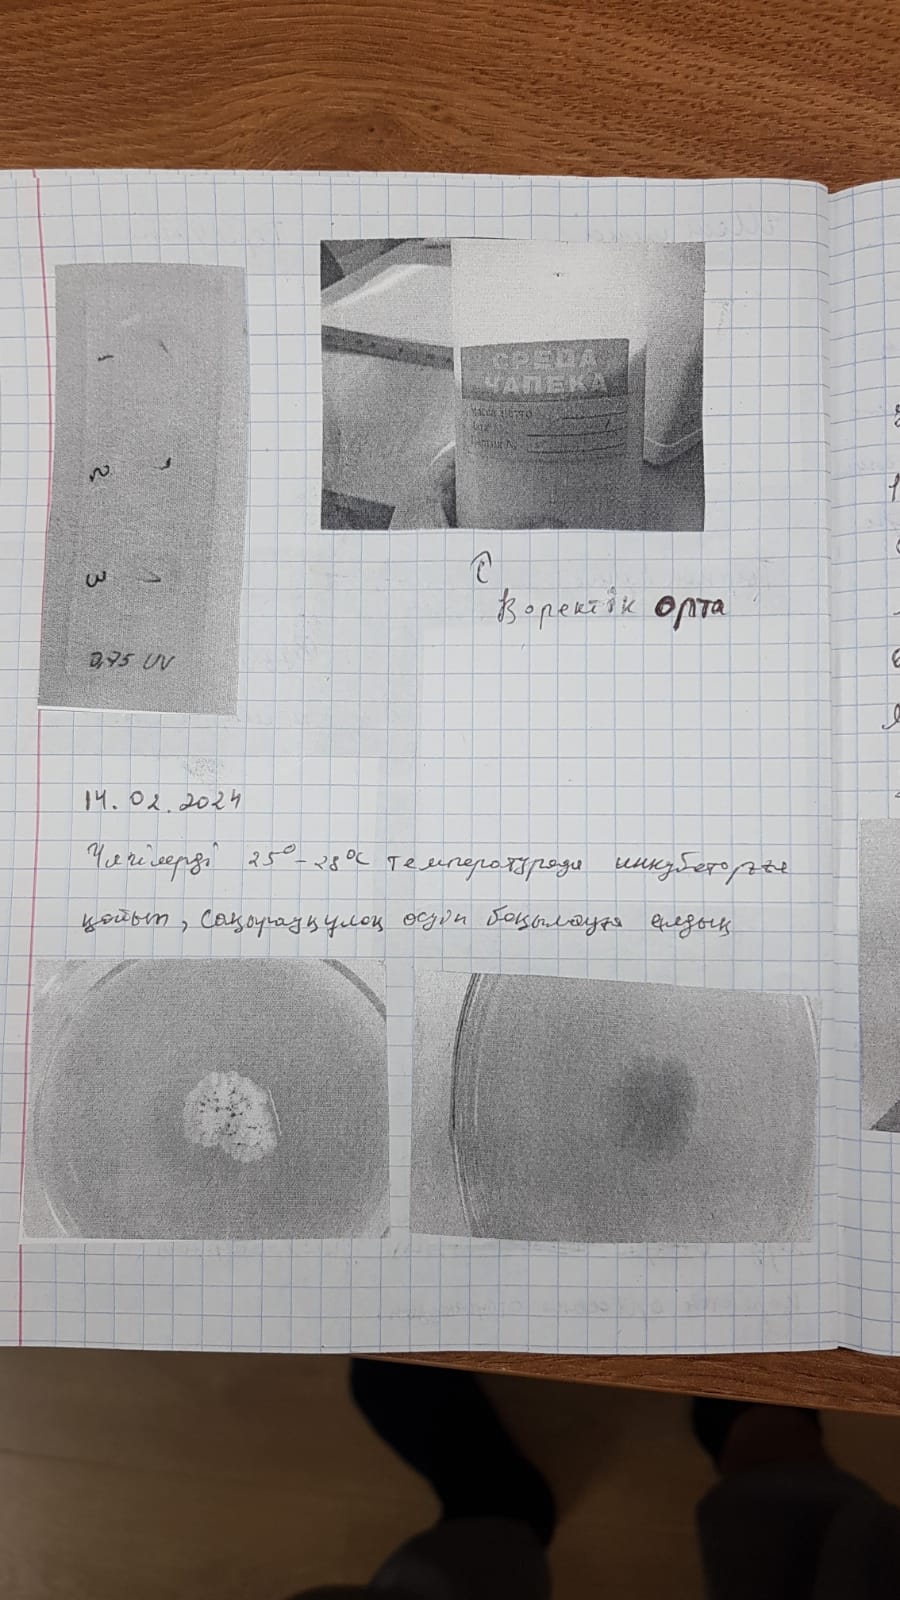 1
2
3
0,75 UV
СРЕДА
ЧАПЕКА
Қоректік орта
14.02.2024
Үлгілерді 25°-28°C температурада инкубаторға
қойып, саңырауқұлақ өсуін бақылауға алдық